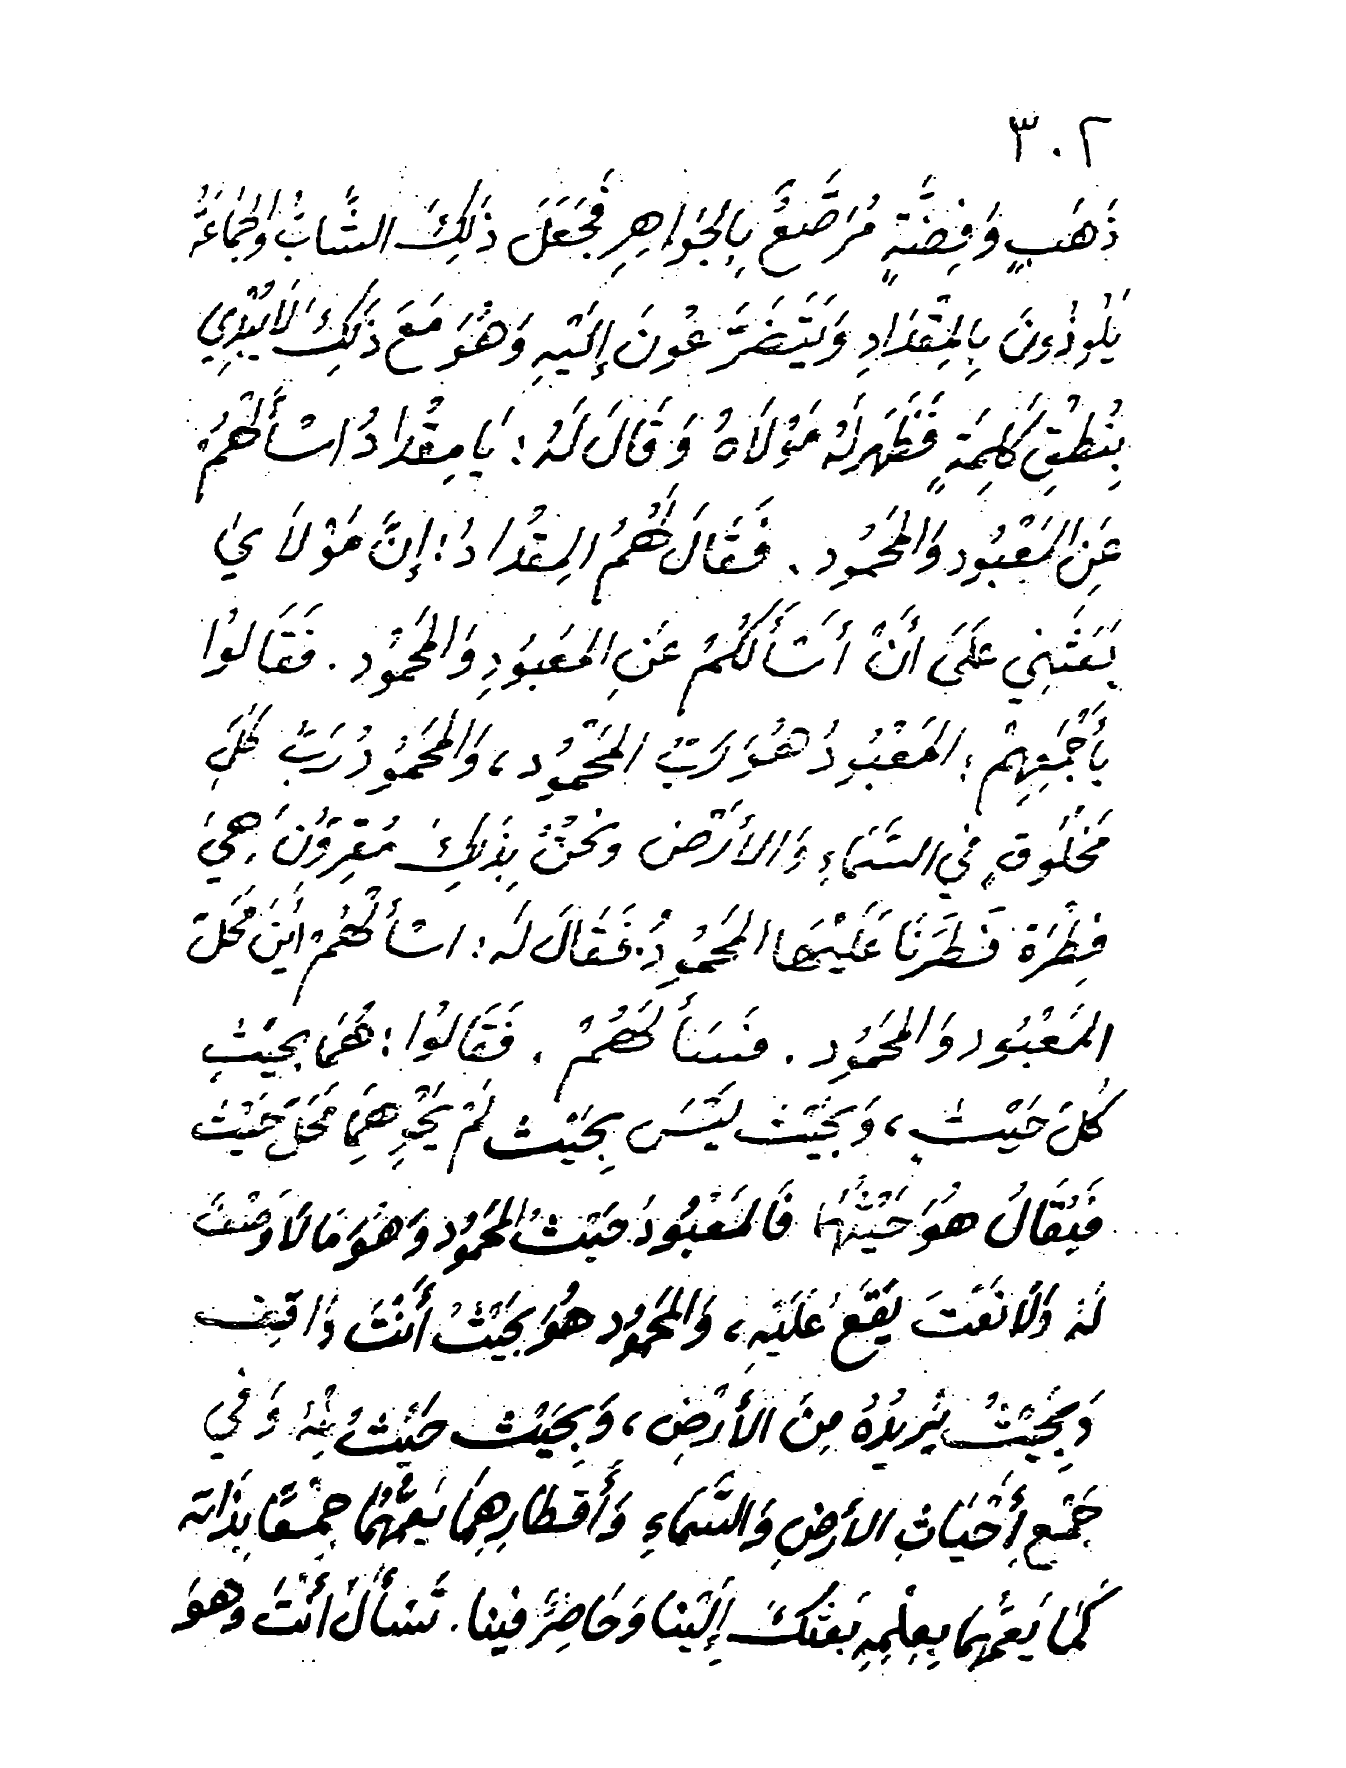 ٣٠٢
ذَهَبٍ وَفِضَّةٍ مُرَصَّعٌ بِالجَوَاهِرِ فَجَعَلَ ذَلِكَ الشَّابُ وَالجَمَاعَةُ
يَلُوذُونَ بِالمِقْدَادِ وَيَتَضَرَّعُونَ إِلَيْهِ وَهُوَ مَعَ ذَلِكَ لَا يُبْدِي
بِنُطْقِ كَلِمَةٍ فَظَهَرَ لَهُ مَوْلَاهُ وَقَالَ لَهُ : يَا مِقْدَادُ اسْأَلْهُمْ
عَنِ المَعْبُودِ وَالمَحْمُودِ . فَقَالَ لَهُمُ المِقْدَادُ : إِنَّ مَوْلَايَ
بَعَثَنِي عَلَى أَنْ أَسْأَلَكُمْ عَنِ المَعْبُودِ وَالمَحْمُودِ . فَقَالُوا
بِأَجْمَعِهِمْ : المَعْبُودُ هُوَ رَبُّ المَحْمُودِ ، وَالمَحْمُودُ رَبُّ كُلِّ
مَخْلُوقٍ فِي السَّمَاءِ وَالأَرْضِ وَنَحْنُ بِذَلِكَ مُقِرُّونَ ، هِيَ
فِطْرَة فَطَرَنَا عَلَيْهَا المَحْمُودُ . فَقَالَ لَهُ : اسْأَلْهُمْ أَيْنَ مَحَلّ
المَعْبُودِ وَالمَحْمُودِ . فَسَأَلَهُمْ . فَقَالُوا : هُمَا بِحَيْثِ
كُلّ حَيْثٍ ، وَبِحَيْثِ لَيْسَ بِحَيْثُ لَمْ يَحْوِهِمَا مَحَلّ حَيْث
فَيُقَالُ هُوَ حَيْثُهُمَا فَالمَعْبُودُ حَيْثُ المَحْمُود وَهُوَ مَا لَا وَصْفَ
لَهُ وَلَا نَعْتَ يَقَعُ عَلَيْهِ ، وَالمَحْمُودِ هُوَ بِحَيْثُ أَنْتَ وَاقِف
وَبِحَيْثُ يُرِيدُهُ مِنَ الأَرْضِ ، وَبِحَيْث حَيْثُ وَفِي
جَمْعِ أَحْيَاثِ الأَرْضِ وَالسَّمَاءِ وَأَقْطَارِهِمَا يَعُمُّهُمَا جَمْعًا بِذَاتِهِ
كَمَا يَعُمُّهُمَا بِعِلْمِهِ بَعَثَكَ إِلَيْنَا وَحَاضِرٌ فِينَا . تَسْأَلُ أَنْتَ وَهُوَ